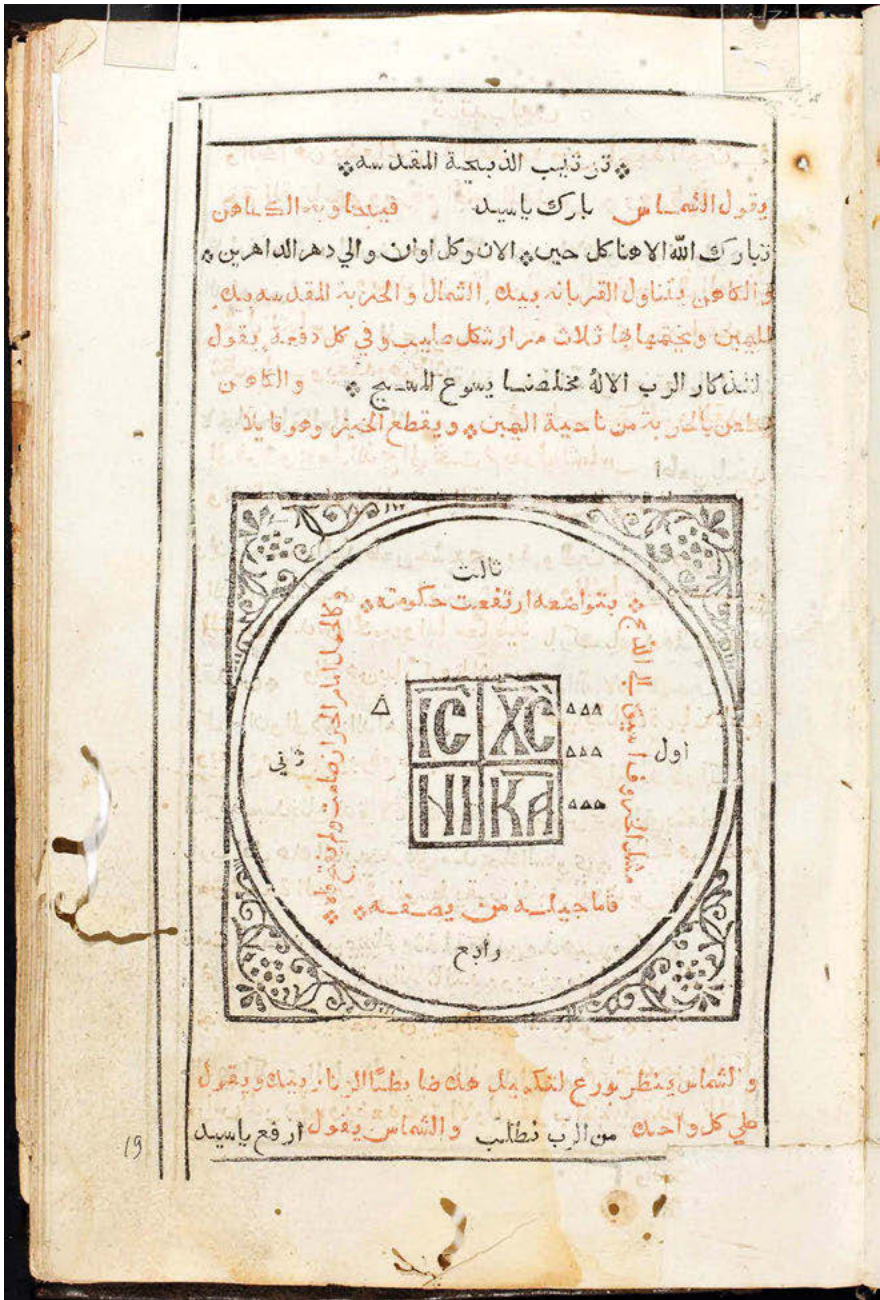 ترتيب الذبيحة المقدسه
يقول الشماس بارك ياسيد فيجاوبه الكاهن
تبارك الله الاهنا كل حين الان وكل اوان والي دهر الداهرين
والكاهن يتناول القربانه بيده الشمال والحربة المقدسه بيده
اليمين ويختمها بها ثلاث مرار شكل صليب وفي كل دفعة يقول
لتذكار الرب الاله مخلصنا يسوع المسيح والكاهن
يطعن بالحربة من ناحية اليمين ويقطع الخبز وهو قايلا
ثالث
بتواضعه ارتفعت حكومته
مثل الخروف اسيق الي الذبح
وكالحمل امام الجزار صامت
اول
ثاني
Δ
ΔΔΔ
ΔΔΔ
ΔΔΔ
ІС ХС
НІ КА
فاما جيله من يصفه
رابع
والشماس ينظر بورع لتكميل هذه ضابطًا الزنار بيده ويقول
علي كل واحده من الرب نطلب والشماس يقول ارفع ياسيد
19